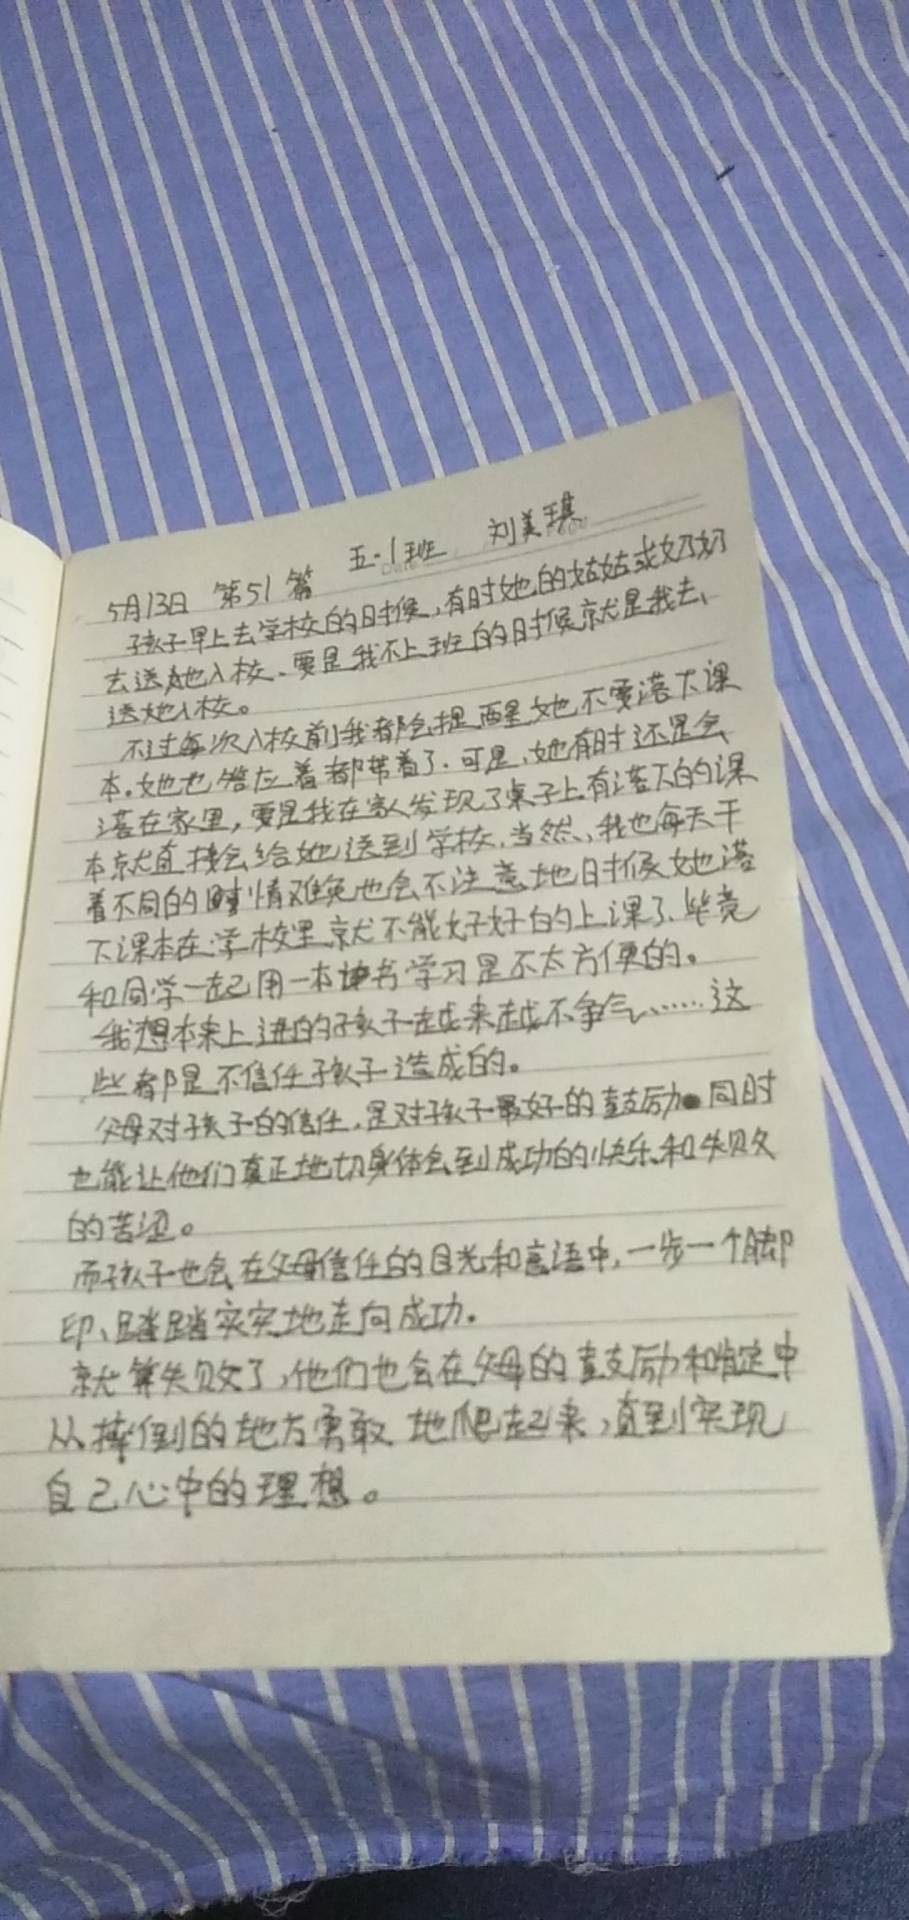 5月13日 第51篇 五·1班 刘美琪
孩子早上去学校的时候,有时她的姑姑或奶奶
去送她入校、要是我不上班的时候就是我去、
送她入校。
不过每次入校前我都会提醒她不要落下课
本。她也答应着都带着了.可是,她有时还是会
落在家里,要是我在家人发现了桌子上有落下的课
本就直接会给她送到学校.当然、我也每天干
着不同的事情难免也会不注意地时候她落
下课本在学校里就不能好好的上课了、毕竟
和同学一起用一本书学习是不太方便的。
我想本来上进的孩子越来越不争气、……这
些都是不信任孩子造成的。
父母对孩子的信任,是对孩子最好的鼓励 同时
也能让他们真正地切身体会到成功的快乐和失败
的苦涩。
而孩子也会在父母信任的目光和言语中,一步一个脚
印、踏踏实实地走向成功。
就算失败了,他们也会在父母的鼓励和肯定中
从摔倒的地方勇敢地爬起来,直到实现
自己心中的理想。